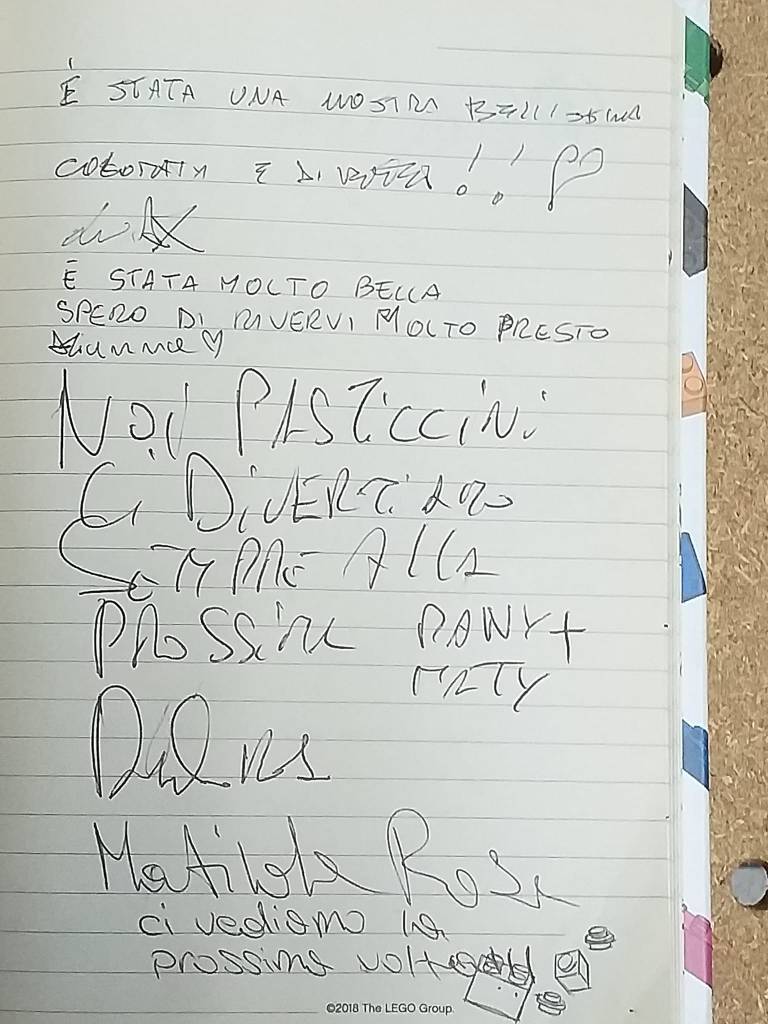 È STATA UNA MOSTRA BELLISSIMA
COLORATA E DIVERTENTE!! 
È STATA MOLTO BELLA
SPERO DI RIVERVI MOLTO PRESTO
NOI PASTICCINI
CI DIVERTIAMO
SEMPRE ALLA
PROSSIMA DANY +
MATY
Matilde Rosa
ci vediamo la
prossima volta
©2018 The LEGO Group.